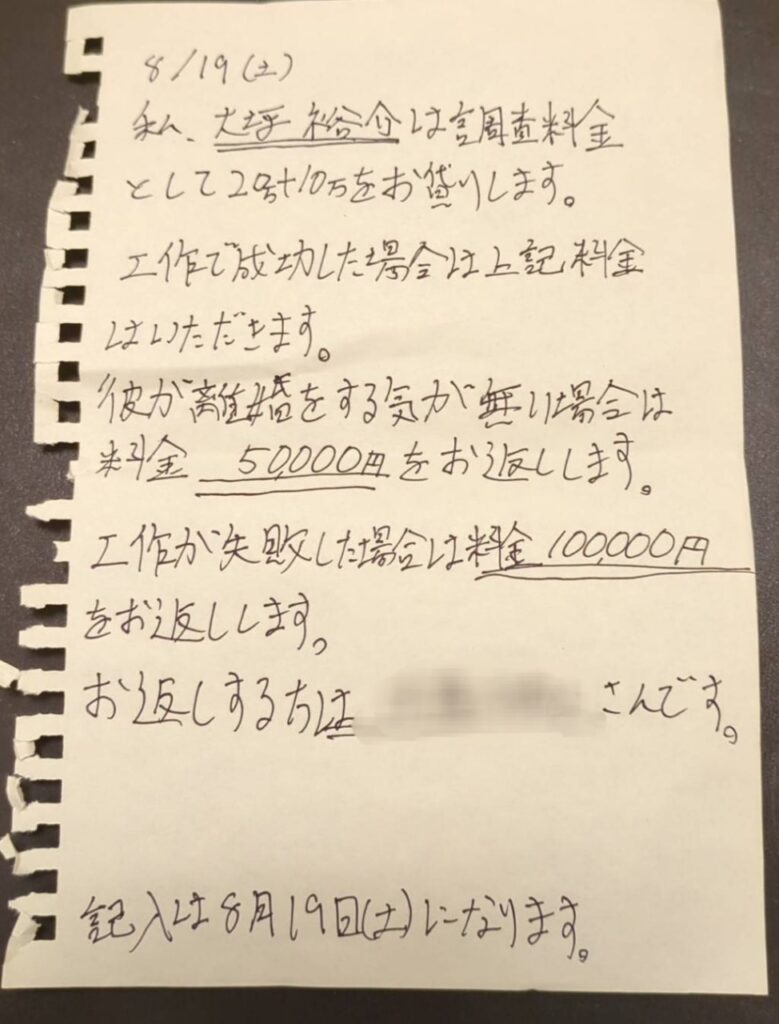 8/19(土)
私、大坪 裕介は調査料金
として2号+10万をお貸りします。
工作で成功した場合は上記料金
はいただきます。
彼が離婚をする気が無い場合は
料金 50,000円をお返しします。
工作が失敗した場合は料金100,000円
をお返しします。
お返しする方は さんです。
記入は8月19日(土)になります。